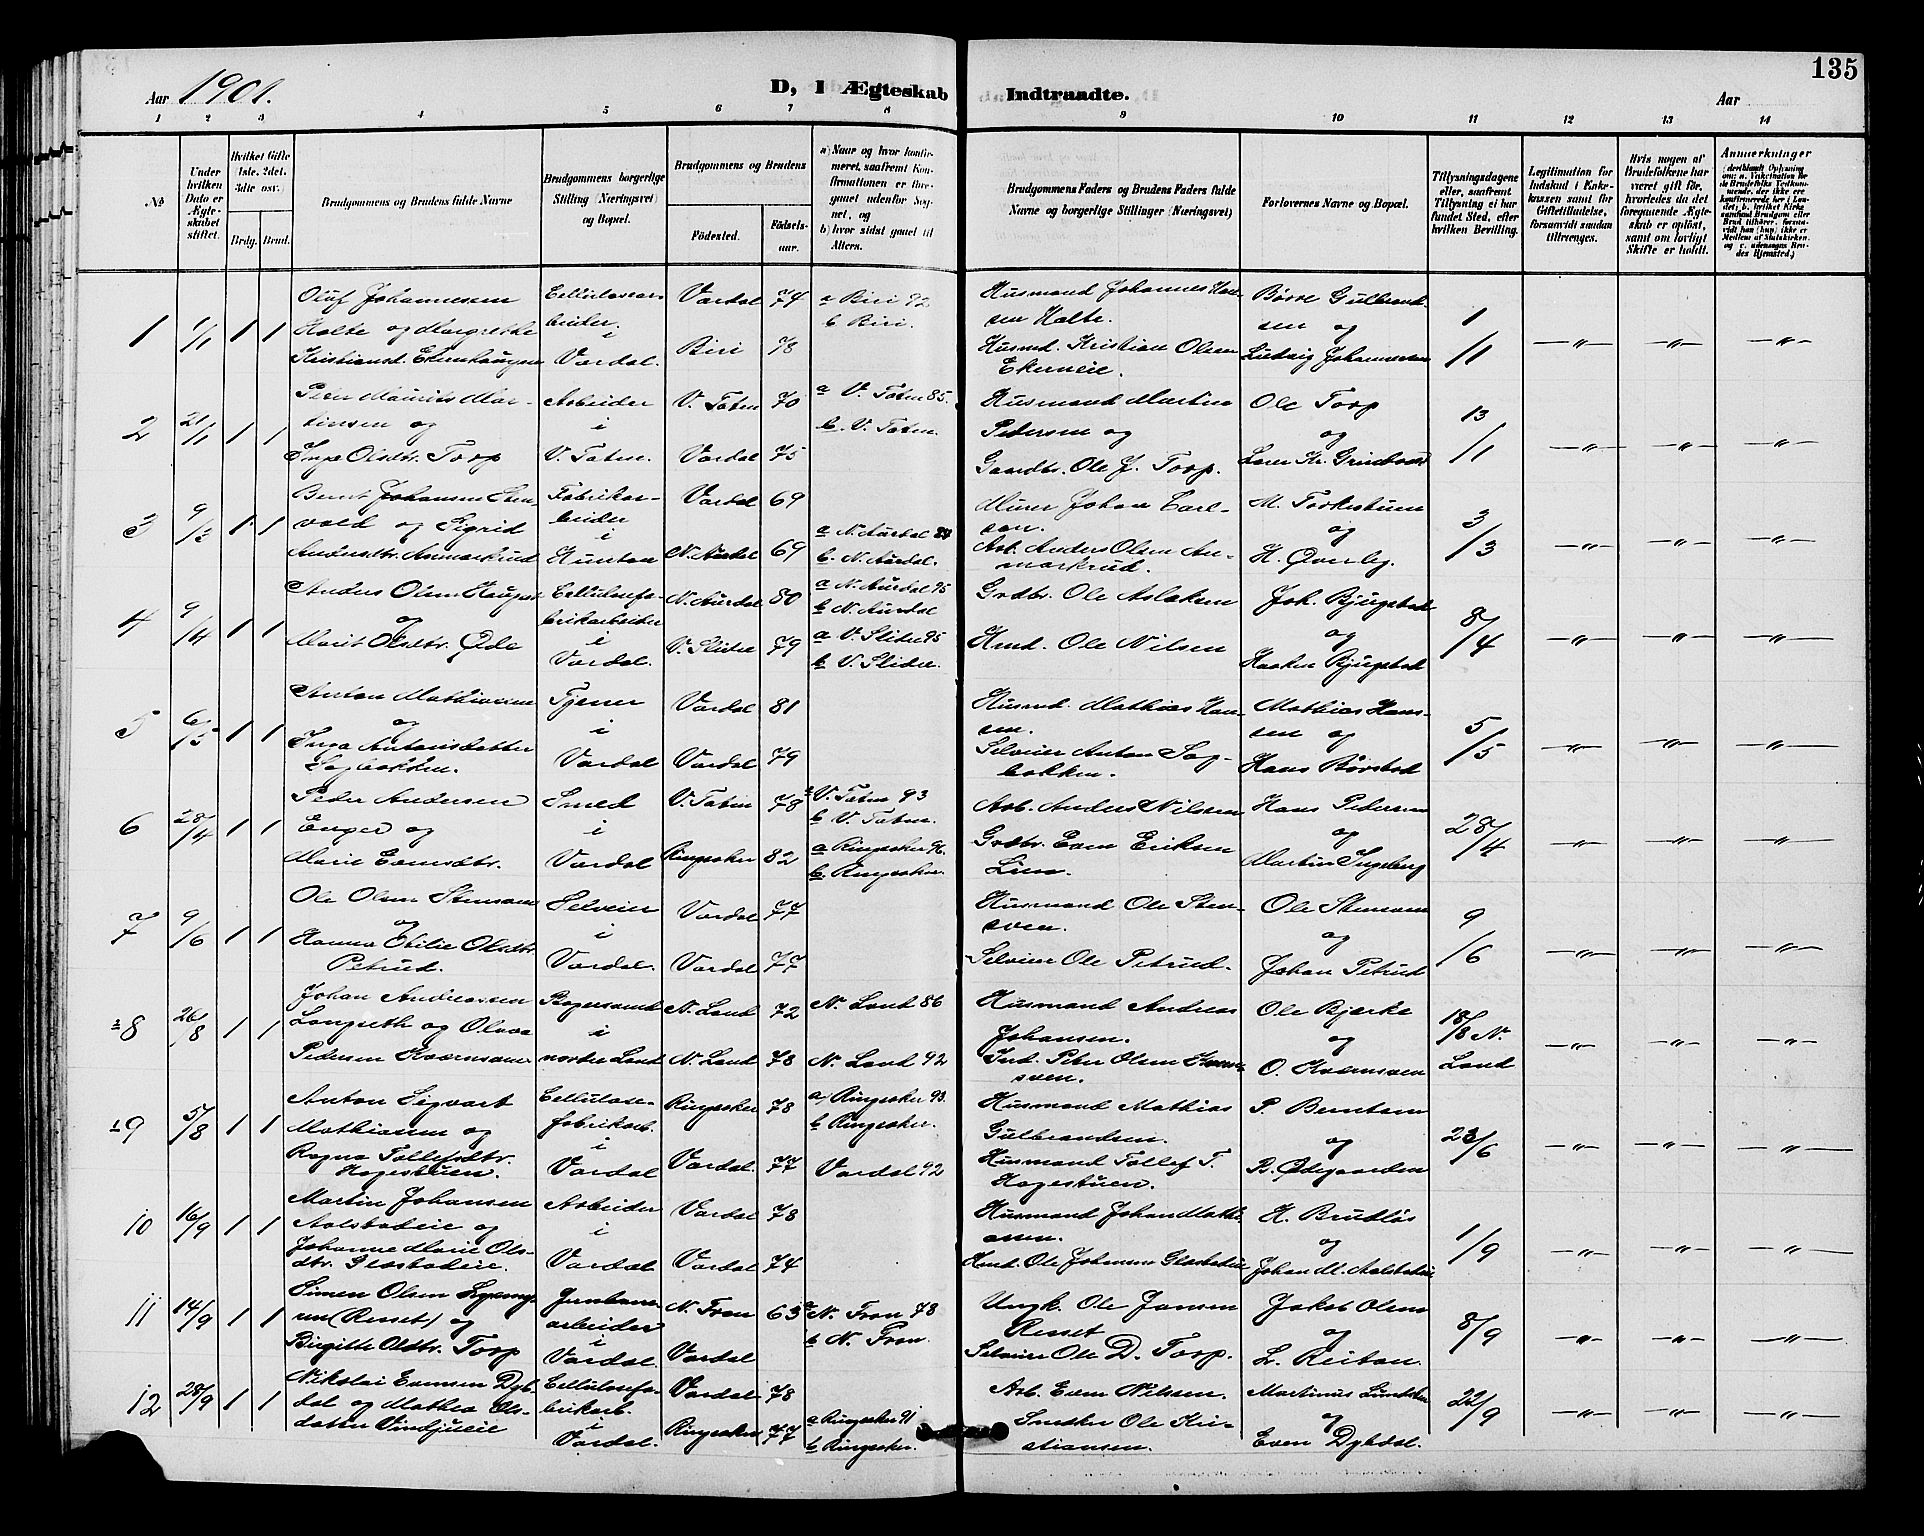 135
Aar 1901.
D, I Ægteskab Indtraadte.
Aar
1 2 3 4 5 6 7 8 9 10 11 12 13 14
No
Under hvilken Dato er Ægteskabet stiftet.
Hvilket Gifte 1ste, 2det, 3die osv.)
Brdg. Brud.
Brudgommens og Brudens fulde Navne
Brudgommens borgerlige Stilling (Næringsvei) og Bopæl.
Brudgommens og Brudens
Fødested.
Fødsels-aar.
a) Naar og hvor konfirmeret, saafremt Konfirmationen er foregaaet udenfor Sognet, og
b) hvor sidst gaaet til Alters.
Brudgommens Faders og Brudens Faders fulde Navne og borgerlige Stillinger (Næringsvei)
Forlovernes Navne og Bopæl.
Tillysningsdagene eller, saafremt Tillysning ei har fundet Sted, efter hvilken Bevilling.
Legitimation for Indskud i Enkekassen samt for Giftetilladelse, forsaavidt saadan tiltrænges.
Hvis nogen af Brudefolkene har været gift før, hvorledes da det foregaaende Ægteskab er opløst, samt om lovligt Skifte er holdt.
Anmærkninger
1 1/1 1 1 Oluf Johannessen Cellulosear- Vardal 74 a Biri 92 Husmand Johannes Han- Børre Gulbrand- 1
Halte og Margrethe beider. b Biri. sen Halte. sen og
Kristiansd. Ekernhaugen i Vardal. Biri 78 Husmd. Kristian Olsen Ekerneie. Ludvig Johannessen /1 —"— —"— —"—
2 21/1 1 1 Peder Maurits Mar- Arbeider V. Toten 70 a V. Toten 85. Husmand Martin Ole Torp 13
tinsen og i b. V. Toten. Pedersen og og
Inga Olsdtr. Torp V. Toten. Vardal 75 Gaardbr. Ole J. Torp. Kr. /1 —"— —"— —"—
3 9/3 1 1 Bernt Johansen Sten- Fabrikar- Vardal 69 Murer Johan Carl- M. 3
vold og Sigrid beider i a N. Aurdal 84 sen. og
Andersdtr. Anmarkrud Hunton N. Aurdal 69 b. N. Aurdal. Arb. Anders Olsen An- markrud. H. Øverby. /3 —"— —"— —"—
4 9/4 1 1 Anders Olsen Cellulosefa- N. Aurdal 80 a N. Aurdal 95 Grdbr. Ole Aslaksen Joh. Bjugstad 8
og brikarbeider i b N. Aurdal og
Marit Olsdtr. Øde Vardal. V. Slidre 79 a V. Slidre 95 b V. Slidre. Hmd. Ole Nilsen Haaken Bjugstad /4 —"— —"— —"—
5 6/5 1 1 Anton Mathiassen Tjener Vardal 81 Husmd. Mathias Han- Mathias Han- 5
og i sen. sen og
Inga Antonsdatter Sagbakken. Vardal Vardal 79 Selveier Anton Sag- bakken. Hans Børstad /5 —"— —"— —"—
6 28/4 1 1 Peder Andersen Smed V. Toten 78 a V. Toten 93 Arb. Anders Nilsen Hans Pedersen 28
Enger og i b V. Toten. og
Marie Evensdtr. Vardal Ringsaker 82 a Ringsaker 96. b Ringsaker. Grdbr. Even Eriksen Lien. Martin Ingeberg /4 —"— —"— —"—
7 9/6 1 1 Ole Olsen Stensven Selveier Vardal 77 Husmand Ole Sten- Ole Stensven 9
og i sven. og
Hanna Otilie Olsdtr. Petrud. Vardal. Vardal 77 Selveier Ole Petrud. Johan Petrud /6 —"— —"— —"—
8 26/8 1 1 Johan Andreassen N. Land 72 N. Land 86 Husmand Andreas Ole Bjerke 18
og Olava i Johansen. og /8 N.
Pedersen Kværnsveen nordre Land N. Land 78 N. Land 92 Peter Olsen Kværn- sven. O. Kværnsven Land —"— —"— —"—
9 5/8 1 1 Anton Sigvart Cellulose- Ringsaker 78 a) Ringsaker 93. Husmand Mathias P. Berntsen
Mathiassen og fabrikarb. b Ringsaker. Gulbrandsen. og 23
Ragna Tollefsdtr. Hagestuen. i Vardal Vardal 77 Vardal 92 Husmand Tollef T. Hagestuen. B. Ødegaarden /6 —"— —"— —"—
10 16/9 1 1 Martin Johansen Arbeider Vardal 78 Husmand Johan Mathi- H. Brudlös 1
Aalstadeie og i asen. og
Johanne Marie Ols- dtr. Glæstadeie. Vardal Vardal 74 Hmd. Ole Johansen Glæstadeie Johan M. Aalstadeie /9 —"— —"— —"—
11 14/9 1 1 Simen Olsen Jernbane- N. Fron 63 a N. Fron 78 Ungk. Ole Jansen Jakob Olsen 8
(Resset) og arbeider i b N. Fron. Resset og
Birgitte Olsdtr. Torp Vardal Vardal Selveier Ole D. Torp. L. Reitan. /9 —"— —"— —"—
12 28/9 1 1 Nikolai Evensen Dyb- Cellulosefa- Vardal 78 Arb. Even Nilsen. Martinus 22
dal og Mathea Ols- brikarb. i a Ringsaker 91 Snedker Ole Kri- og
datter Vindjueie Vardal. Ringsaker 77 b Ringsaker. stiansen. Even Dybdal. /9 —"— —"— —"—